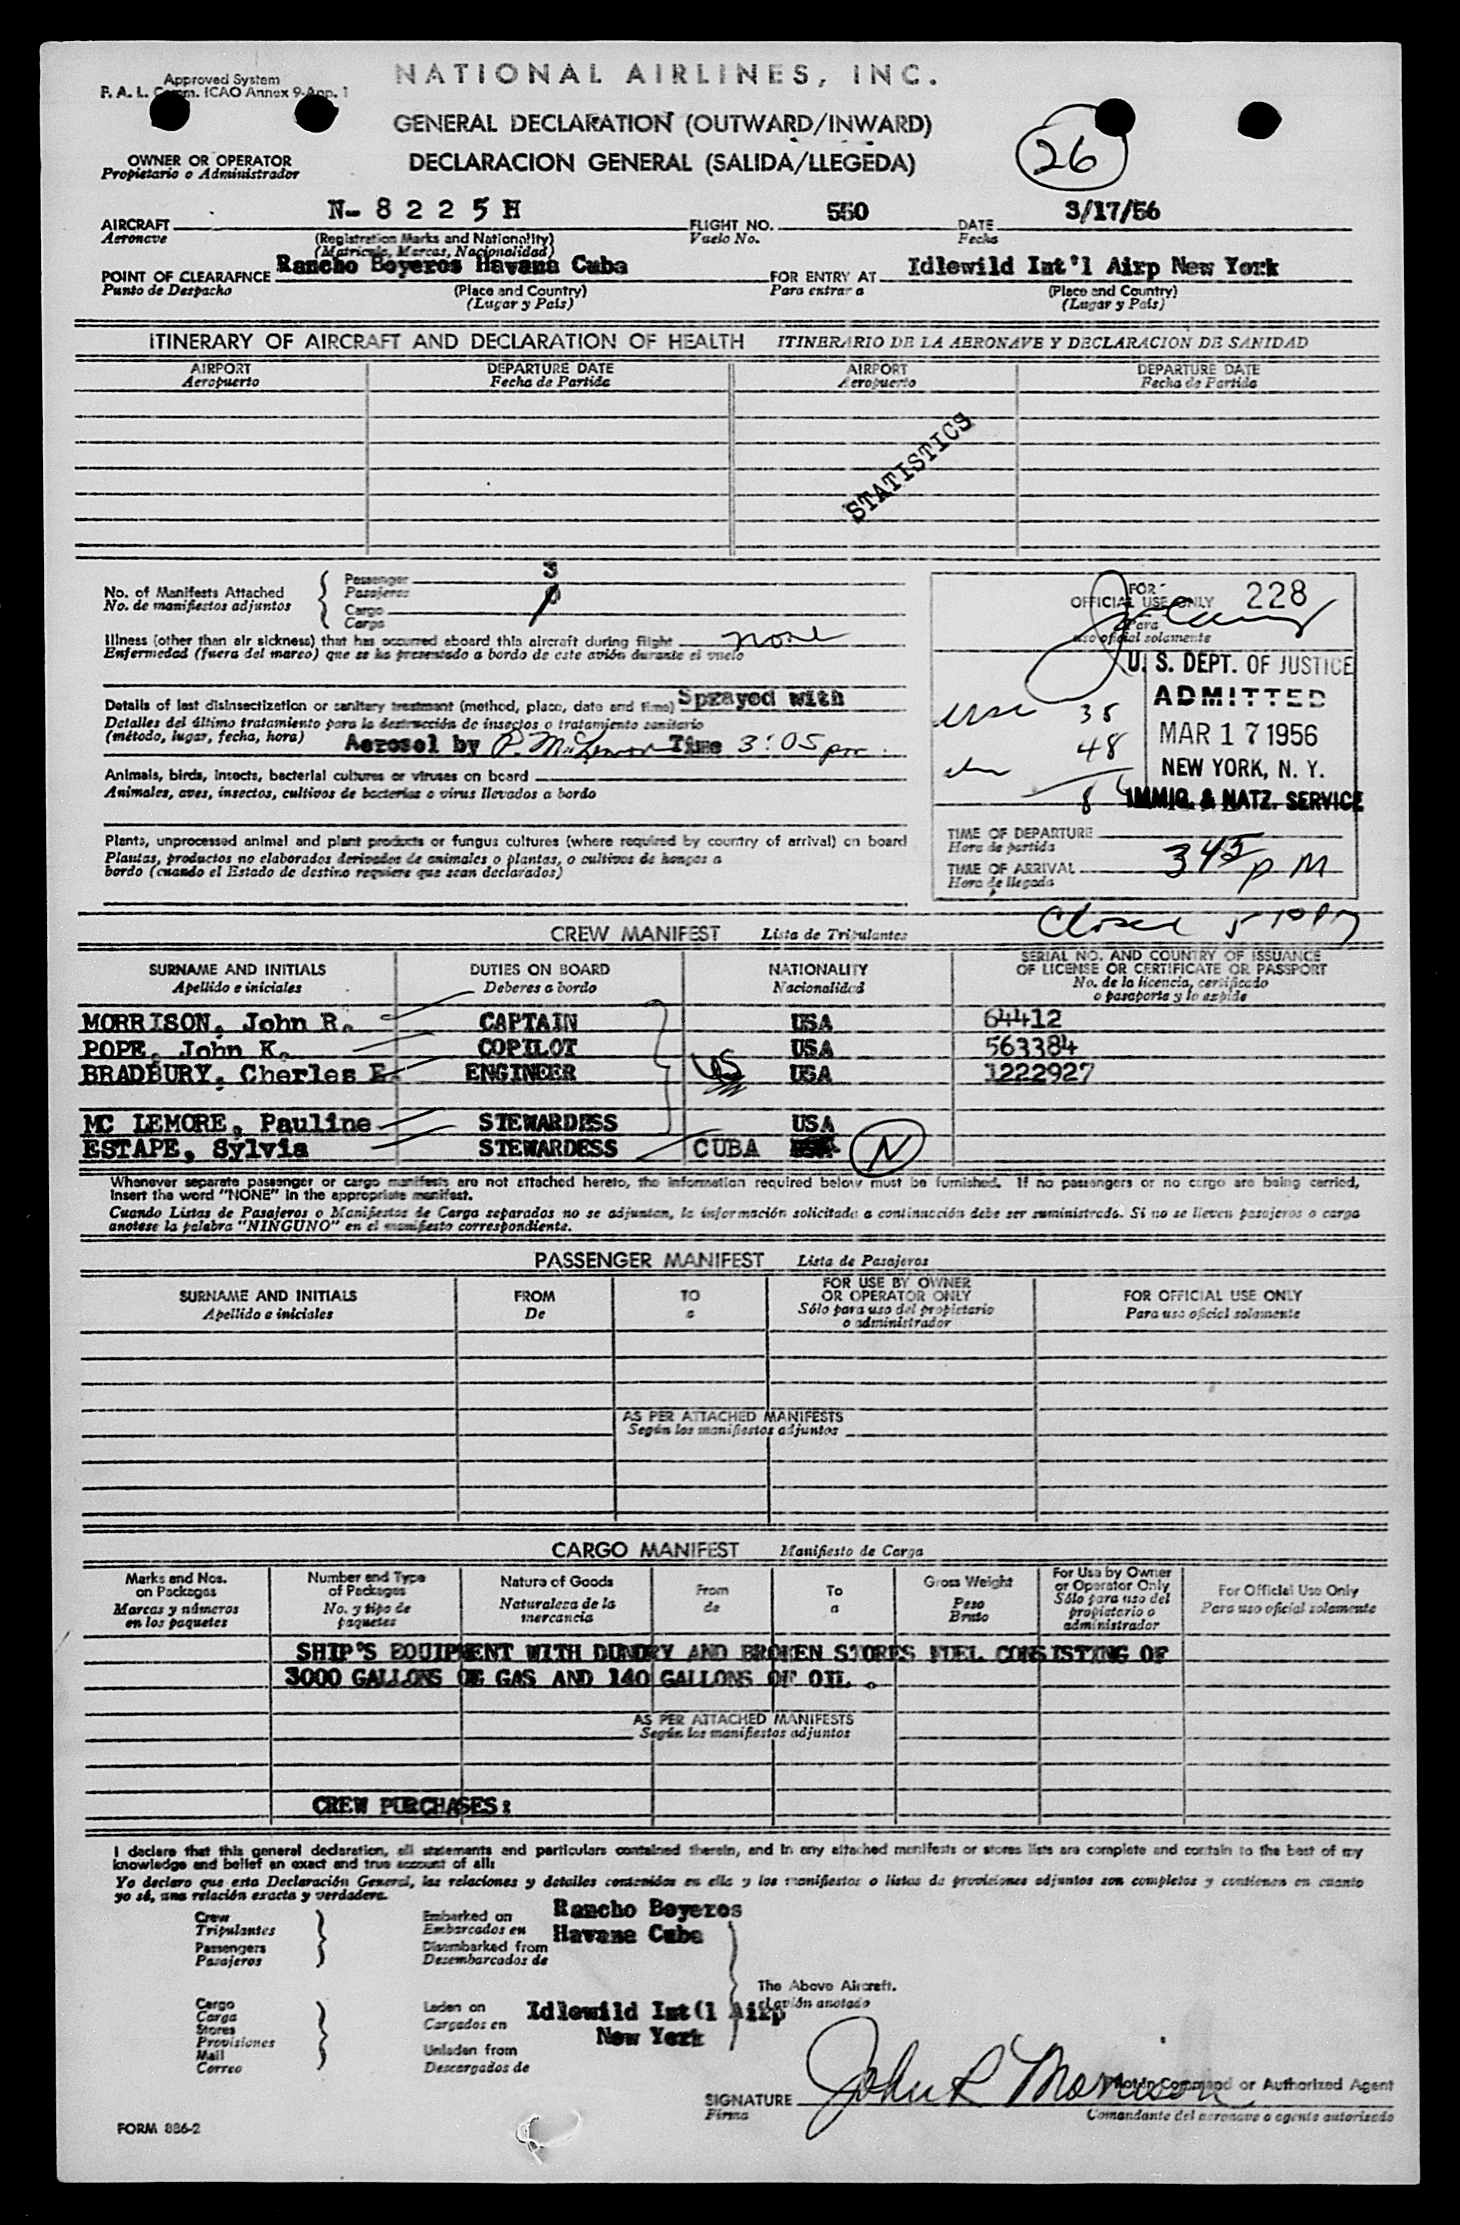 Approved System
F. A. L. Comm. ICAO Annex 9-App. 1
NATIONAL AIRLINES, INC.
GENERAL DECLARATION (OUTWARD/INWARD)
DECLARACION GENERAL (SALIDA/LLEGEDA)
26
OWNER OR OPERATOR
Propietario o Administrador
AIRCRAFT N-8225H FLIGHT NO. 550 DATE 3/17/56
Aeronave (Registration Marks and Nationality) Vuelo No. Fecha
(Matricula, Marcas, Nacionalidad)
POINT OF CLEARAFNCE Rancho Boyeros Havana Cuba FOR ENTRY AT Idlewild Int'l Airp New York
Punto de Despacho (Place and Country) Para entrar a (Place and Country)
(Lugar y País) (Lugar y País)
ITINERARY OF AIRCRAFT AND DECLARATION OF HEALTH ITINERARIO DE LA AERONAVE Y DECLARACION DE SANIDAD
AIRPORT DEPARTURE DATE AIRPORT DEPARTURE DATE
Aeropuerto Fecha de Partida Aeropuerto Fecha de Partida
STATISTICS
No. of Manifests Attached
No. de manifiestos adjuntos
Passenger 3
Pasajeros
Cargo
Carga
Illness (other than air sickness) that has occurred aboard this aircraft during flight none
Enfermedad (fuera del mareo) que se ha presentado a bordo de este avión durante el vuelo
Details of last disinsectization or sanitary treatment (method, place, date and time) Sprayed with
Detalles del último tratamiento para la destrucción de insectos o tratamiento sanitario
(método, lugar, fecha, hora) Aerosol by P. McLemore Time 3:05 pm.
Animals, birds, insects, bacterial cultures or viruses on board
Animales, aves, insectos, cultivos de bacterias o virus llevados a bordo
Plants, unprocessed animal and plant products or fungus cultures (where required by country of arrival) on board
Plantas, productos no elaborados derivados de animales o plantas, o cultivos de hongos a
bordo (cuando el Estado de destino requiere que sean declarados)
FOR 228
OFFICIAL USE ONLY
Para
uso oficial solamente
U. S. DEPT. OF JUSTICE
ADMITTED
MAR 17 1956
NEW YORK, N. Y.
IMMIG. & NATZ. SERVICE
38
48
TIME OF DEPARTURE
Hora de partida
TIME OF ARRIVAL 345 PM
Hora de llegada
Closed 5-10 PM
CREW MANIFEST Lista de Tripulantes
SURNAME AND INITIALS DUTIES ON BOARD NATIONALITY SERIAL NO. AND COUNTRY OF ISSUANCE
OF LICENSE OR CERTIFICATE OR PASSPORT
Apellido e iniciales Deberes a bordo Nacionalidad No. de la licencia, certificado
o pasaporte y lo expide
MORRISON, John R. CAPTAIN USA 64412
POPE, John K. COPILOT USA 563384
BRADBURY, Charles E. ENGINEER US USA 1222927
MC LEMORE, Pauline STEWARDESS USA
ESTAPE, Sylvia STEWARDESS CUBA N
Whenever separate passenger or cargo manifests are not attached hereto, the information required below must be furnished. If no passengers or no cargo are being carried,
insert the word "NONE" in the appropriate manifest.
Cuando Listas de Pasajeros o Manifestos de Carga separados no se adjuntan, la información solicitada a continuación debe ser suministrada. Si no se lleven pasajeros o carga
anotese la palabra "NINGUNO" en el manifesto correspondiente.
PASSENGER MANIFEST Lista de Pasajeros
SURNAME AND INITIALS FROM TO FOR USE BY OWNER
OR OPERATOR ONLY FOR OFFICIAL USE ONLY
Apellido e iniciales De a Sólo para uso del propietario
o administrador Para uso oficial solamente
AS PER ATTACHED MANIFESTS
Según los manifiestos adjuntos
CARGO MANIFEST Manifiesto de Carga
Marks and Nos.
on Packages
Marcas y números
en los paquetes
Number and Type
of Packages
No. y tipo de
paquetes
Nature of Goods
Naturaleza de la
mercancia
From
de
To
a
Gross Weight
Peso
Bruto
For Use by Owner
or Operator Only
Sólo para uso del
propietario o
administrador
For Official Use Only
Para uso oficial solamente
SHIP'S EQUIPMENT WITH DUNDRY AND BROKEN STORES FUEL CONSISTING OF
3000 GALLONS OF GAS AND 140 GALLONS OF OIL .
AS PER ATTACHED MANIFESTS
Según los manifiestos adjuntos
CREW PURCHASES:
I declare that this general declaration, all statements and particulars contained therein, and in any attached manifests or stores lists are complete and contain to the best of my
knowledge and belief an exact and true account of all:
Yo declaro que esta Declaración General, las relaciones y detalles contenidos en ella y los manifiestos o listas de provisiones adjuntos son completos y contienen en cuanto
yo sé, una relación exacta y verdadera.
Crew
Tripulantes
Passengers
Pasajeros
Embarked on Rancho Boyeros
Embarcados en Havana Cuba
Disembarked from
Desembarcados de
The Above Aircraft.
el avión anotado
Cargo
Carga
Stores
Provisiones
Mail
Correo
Laden on Idlewild Int(l Airp
Cargados en New York
Unladen from
Descargados de
SIGNATURE John R Morrison Pilot in Command or Authorized Agent
Firma Comandante del aeronave o agente autorizado
FORM 886-2